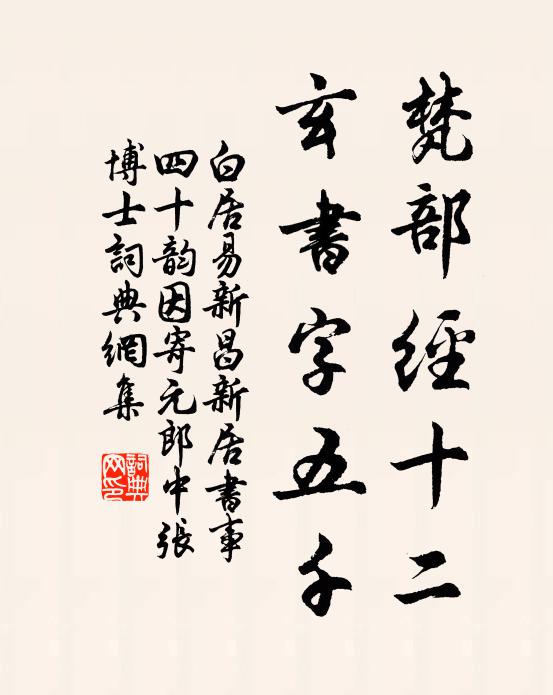 梵部經十二
玄書字五千
白居易新昌新居書事
四十韵因寄元郎中張
博士詞典網集
詞典
网印